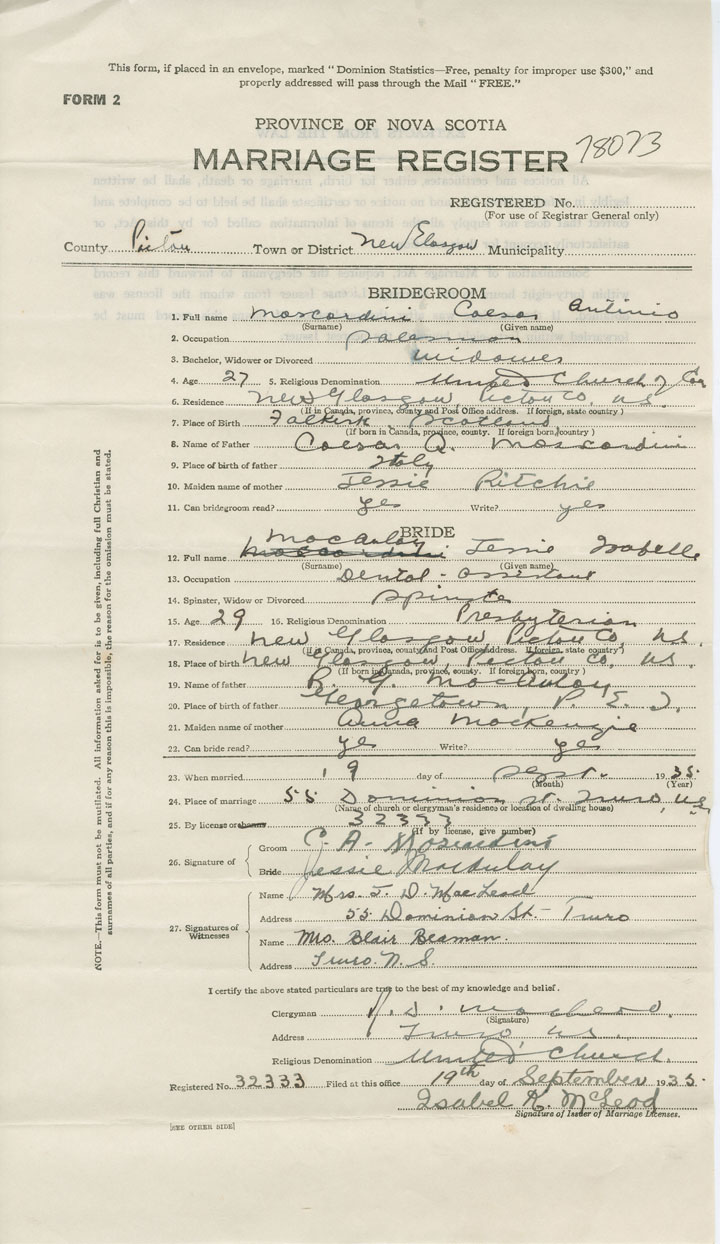 This form, if placed in an envelope, marked "Dominion Statistics—Free, penalty for improper use $300," and
properly addressed will pass through the Mail "FREE."
FORM 2
PROVINCE OF NOVA SCOTIA
MARRIAGE REGISTER 78073
REGISTERED No.
(For use of Registrar General only)
County Pictou Town or District New Glasgow Municipality
BRIDEGROOM
1. Full name Moscardini Caesar Antinio
(Surname) (Given name)
2. Occupation Salesman
3. Bachelor, Widower or Divorced widower
4. Age 27 5. Religious Denomination United Church of Can
6. Residence New Glasgow, Pictou Co. N.S.
(If in Canada, province, county and Post Office address. If foreign, state country)
7. Place of Birth Falkirk, Scotland
(If born in Canada, province, county. If foreign born, country)
8. Name of Father Caesar A. Moscardini
9. Place of birth of father Italy
10. Maiden name of mother Jessie Ritchie
11. Can bridegroom read? yes Write? yes
BRIDE
MacAulay
12. Full name Moscardini Jessie Isabelle
(Surname) (Given name)
13. Occupation Dental - assistant
14. Spinster, Widow or Divorced Spinster
15. Age 29 16. Religious Denomination Presbyterian
17. Residence New Glasgow, Pictou Co. N.S.
(If in Canada, province, county and Post Office address. If foreign, state country)
18. Place of birth New Glasgow, Pictou Co. N.S.
(If born in Canada, province, county. If foreign born, country)
19. Name of father MacAulay
20. Place of birth of father Georgetown, P. E. I.
21. Maiden name of mother Anna MacKenzie
22. Can bride read? yes Write? yes
23. When married 19 day of Sept. 1935.
(Month) (Year)
24. Place of marriage 55 Dominion St. Truro, N.S.
(Name of church or clergyman's residence or location of dwelling house)
25. By license or banns 32333
(If by license, give number)
26. Signature of Groom C. A. Moscardini
Bride Jessie MacAulay
27. Signatures of Witnesses
Name Mrs. J. D. MacLeod
Address 55 Dominion St. - Truro
Name Mrs. Blair Beaman.
Address Truro. N. S.
I certify the above stated particulars are true to the best of my knowledge and belief.
Clergyman J. D. MacLeod.
(Signature)
Address Truro, N.S.
Religious Denomination United Church.
Registered No. 32333 Filed at this office 19th day of September 1935.
Isabel K. McLeod
Signature of Issuer of Marriage Licenses.
[SEE OTHER SIDE]
NOTE.—This form must not be mutilated. All information asked for is to be given, including full Christian and
surnames of all parties, and if for any reason this is impossible, the reason for the omission must be stated.